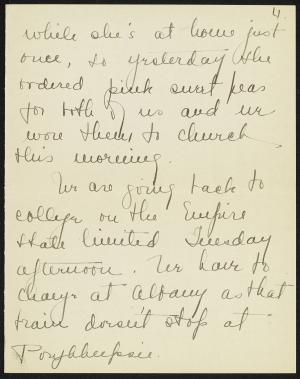 4.
while she's at home just
once, so yesterday she
ordered pink sweet peas
for both of us and we
wore them to church
this morning.
We are going back to
college on the Empire
State limited Tuesday
afternoon. We have to
change at Albany as that
train doesn't stop at
Poughkeepsie.